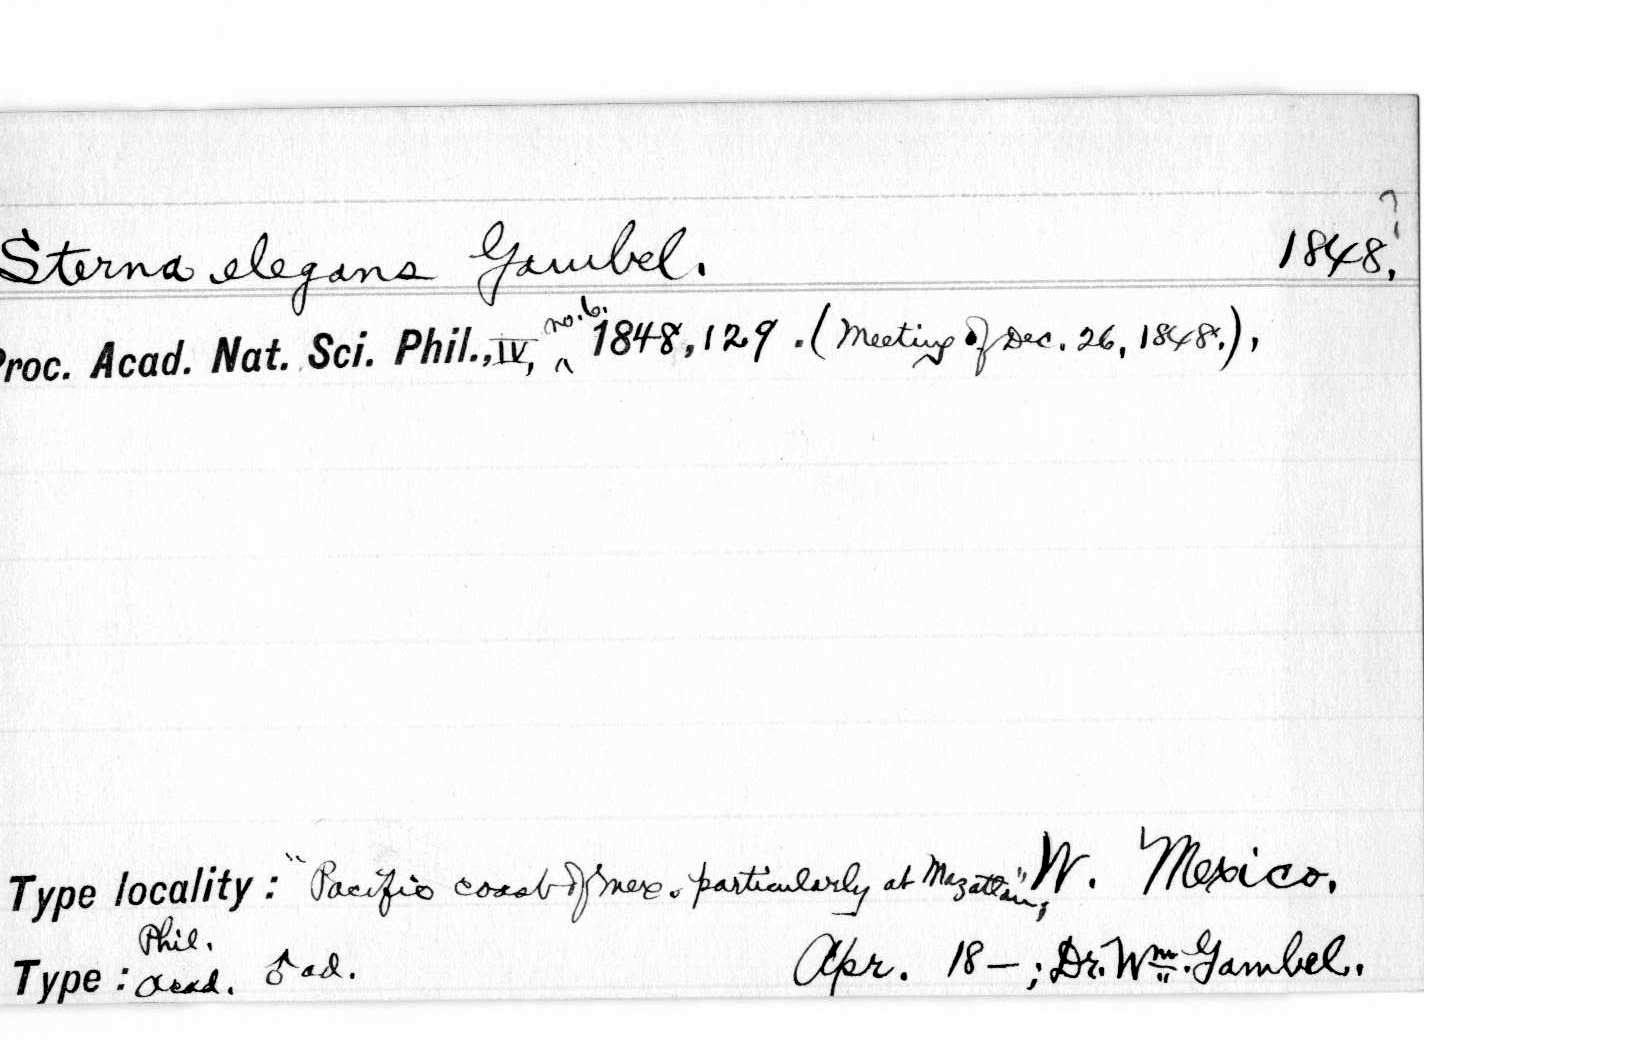 Sterna elegans Gambel. 1848.?
Proc. Acad. Nat. Sci. Phil., IV, no. 6. 1848, 129. (Meeting of Dec. 26, 1848.),
Type locality: "Pacific coast of Mex. particularly at Mazatlan"; W. Mexico.
Type: Phil. Acad. ♂ ad. Apr. 18–; Dr. Wm. Gambel.